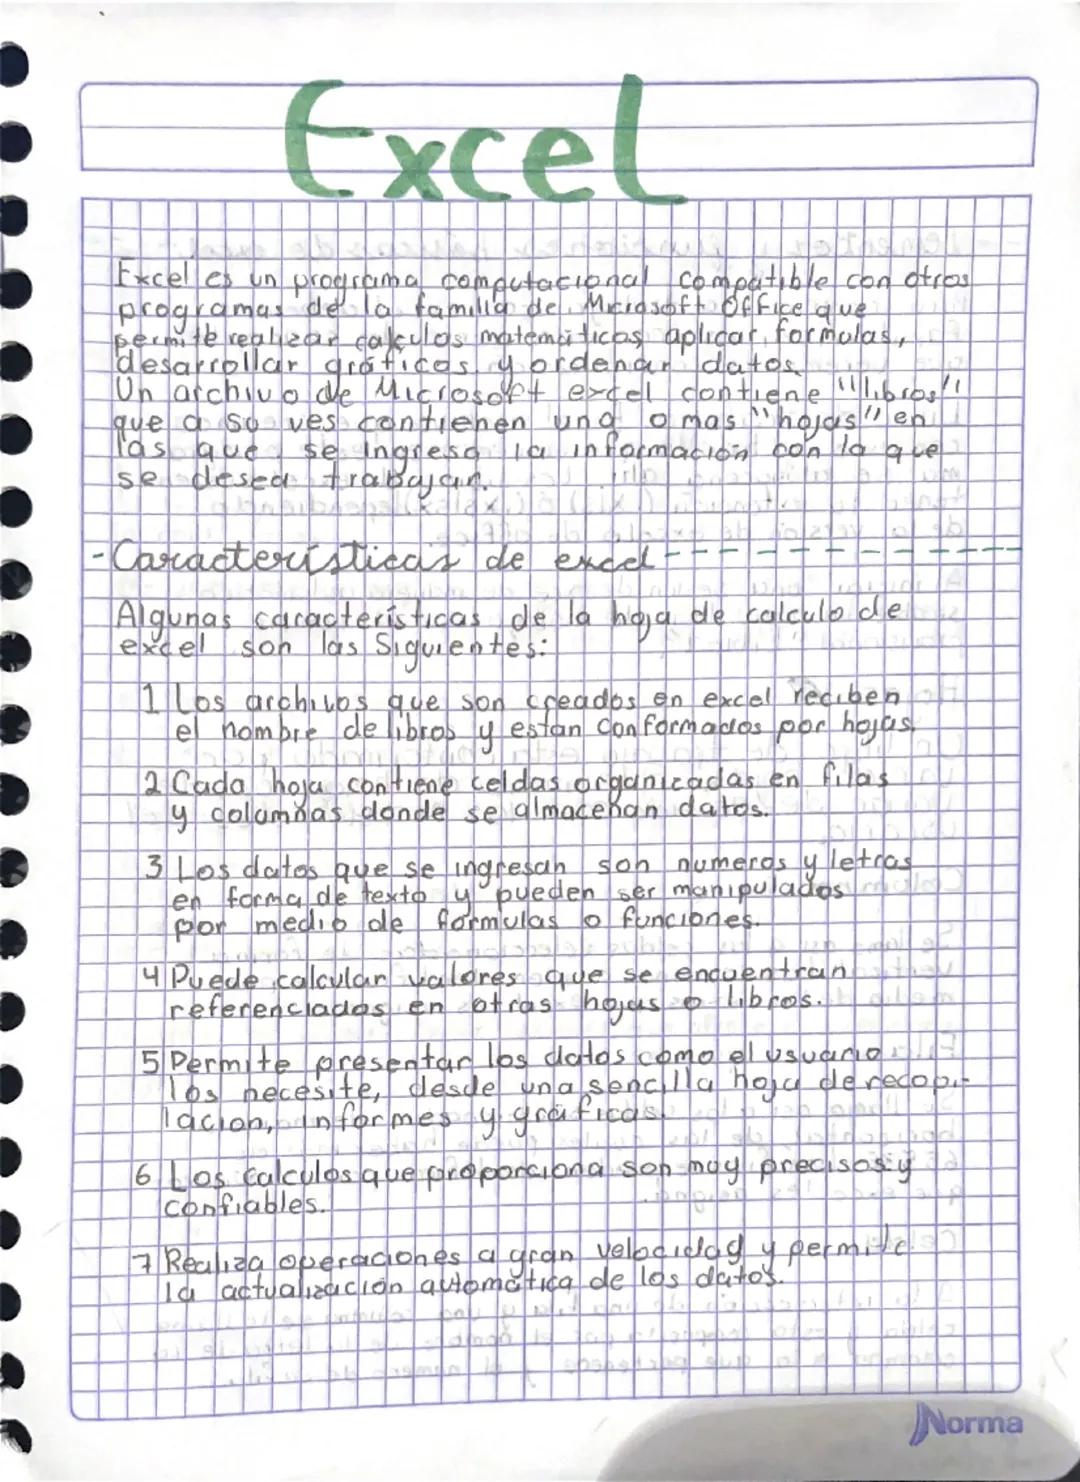 Excel
Excel es un programa computacional compatible con otros
programas de la familia de Microsoft Office que
permite realizar calculos matemáticos, aplicar formulas,
desarrollar gráficos y ordenar datos.
Un archivo de Microsoft excel contiene "libros"
que a su ves contienen una o mas "hojas" en
las que se ingresa la información con la que
se desea trabajar.
- Características de excel - - - - - - - - - - -
Algunas características de la hoja de calculo de
excel son las Siguientes:
1 Los archivos que son creados en excel reciben
el nombre de libros y estan conformados por hojas.
2 Cada hoja contiene celdas organizadas en filas
y columnas donde se almacenan datos.
3 Los datos que se ingresan son numeros y letras
en forma de texto y pueden ser manipulados
por medio de formulas o funciones.
4 Puede calcular valores que se encuentran
referenciados en otras hojas o libros.
5 Permite presentar los datos como el usuario
los necesite, desde una sencilla hoja de recopi-
lacion, informes y gráficas.
6 Los calculos que proporciona son muy precisos y
confiables.
7 Realiza operaciones a gran velocidad y permite
la actualización automática de los datos.
Norma